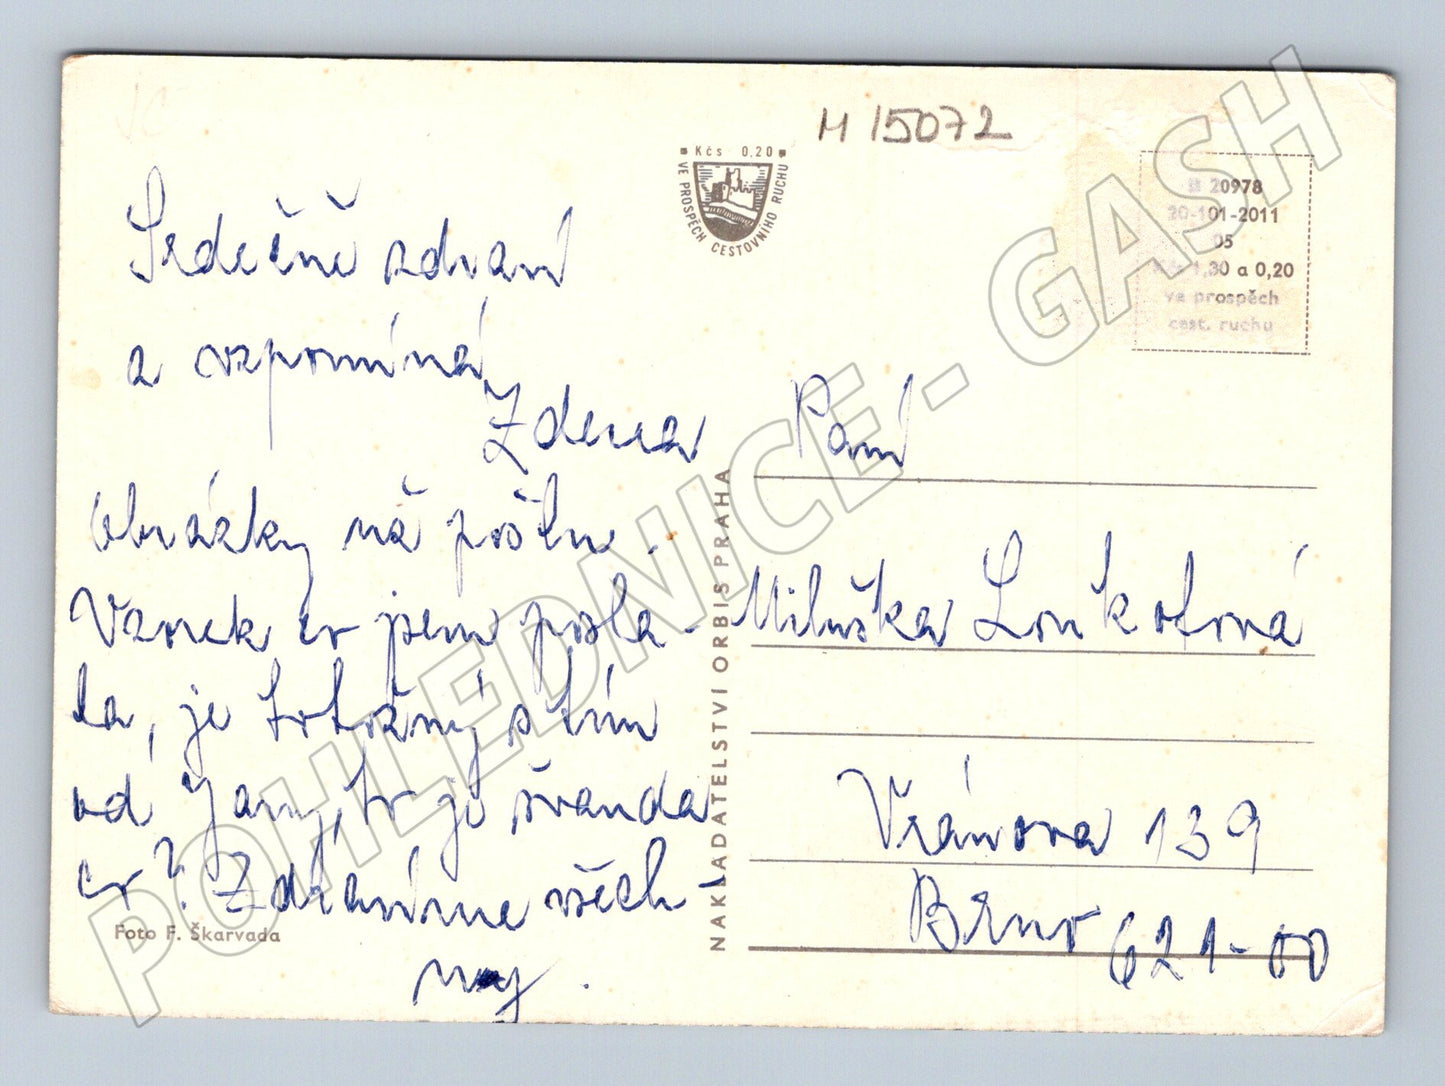 M 15072
Kčs 0,20
VE PROSPĚCH CESTOVNÍHO RUCHU
B 20978
20-101-2011
05
Kčs 1,30 a 0,20
ve prospěch
cest. ruchu
Srdečně zdraví
a vzpomíná
Zdena
Obrázky nă pošlu.
Vzorek co jsem posla-
la, je totožný s tím
od Jany, to je švanda
co? Zdravíme všech-
ny.
Foto F. Škarvada
NAKLADATELSTVÍ ORBIS PRAHA
Paní
Miluška Loukotová
Vránova 139
Brno 621-00
POHLEDNICE - GASH